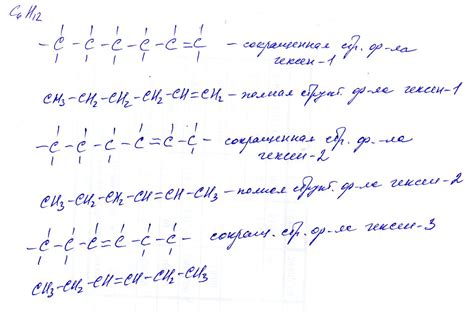 C6H12
-C-C-C-C-C=C- - сокращенная стр. ф-ла
гексен-1
CH3-CH2-CH2-CH2-CH=CH2 - полная структ. ф-ла гексен-1
-C-C-C-C=C-C- сокращенная стр. ф-ла
гексен-2
CH3-CH2-CH2-CH=CH-CH3 - полная структ. ф-ла гексен-2
-C-C-C=C-C-C- сокращ. стр. ф-ла гексен-3
CH3-CH2-CH=CH-CH2-CH3